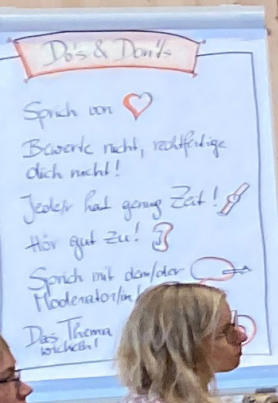 Do's & Don'ts
Sprich von
Bewerte nicht, rechtfertige
dich nicht!
Jede/r hat genug Zeit!
Hör gut zu!
Sprich mit dem/der
Moderator/in!
Das Thema